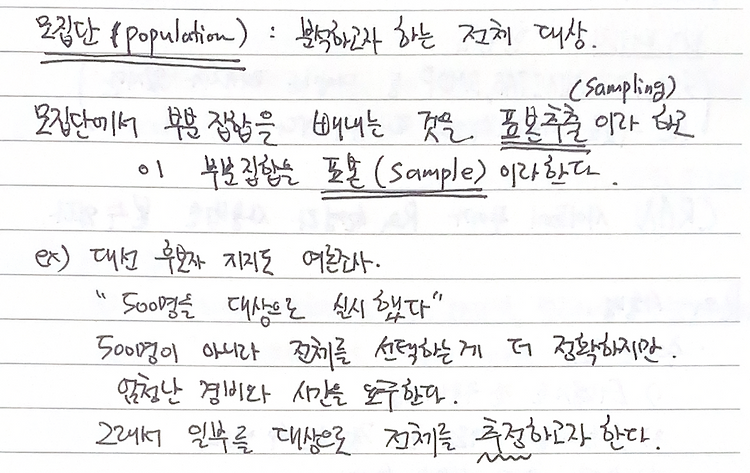 모집단 (population) : 분석하고자 하는 전체 대상.
(Sampling)
모집단에서 부분 집합을 빼내는 것을 표본추출 이라 하고
이 부분집합을 표본 (Sample) 이라한다.
ex) 대선 후보자 지지도 여론조사.
" 500명을 대상으로 실시 했다"
500명이 아니라 전체를 선택하는게 더 정확하지만.
엄청난 경비와 시간을 요구한다.
그래서 일부를 대상으로 전체를 추정하고자 한다.